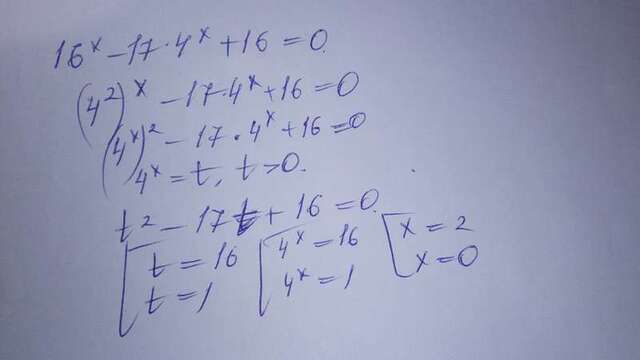 16ˣ – 17 · 4ˣ + 16 = 0
(4²)ˣ – 17 · 4ˣ + 16 = 0
(4ˣ)² – 17 · 4ˣ + 16 = 0
4ˣ = t, t > 0.
t² – 17t + 16 = 0
[ t = 16 [ 4ˣ = 16 [ x = 2
t = 1 4ˣ = 1 x = 0